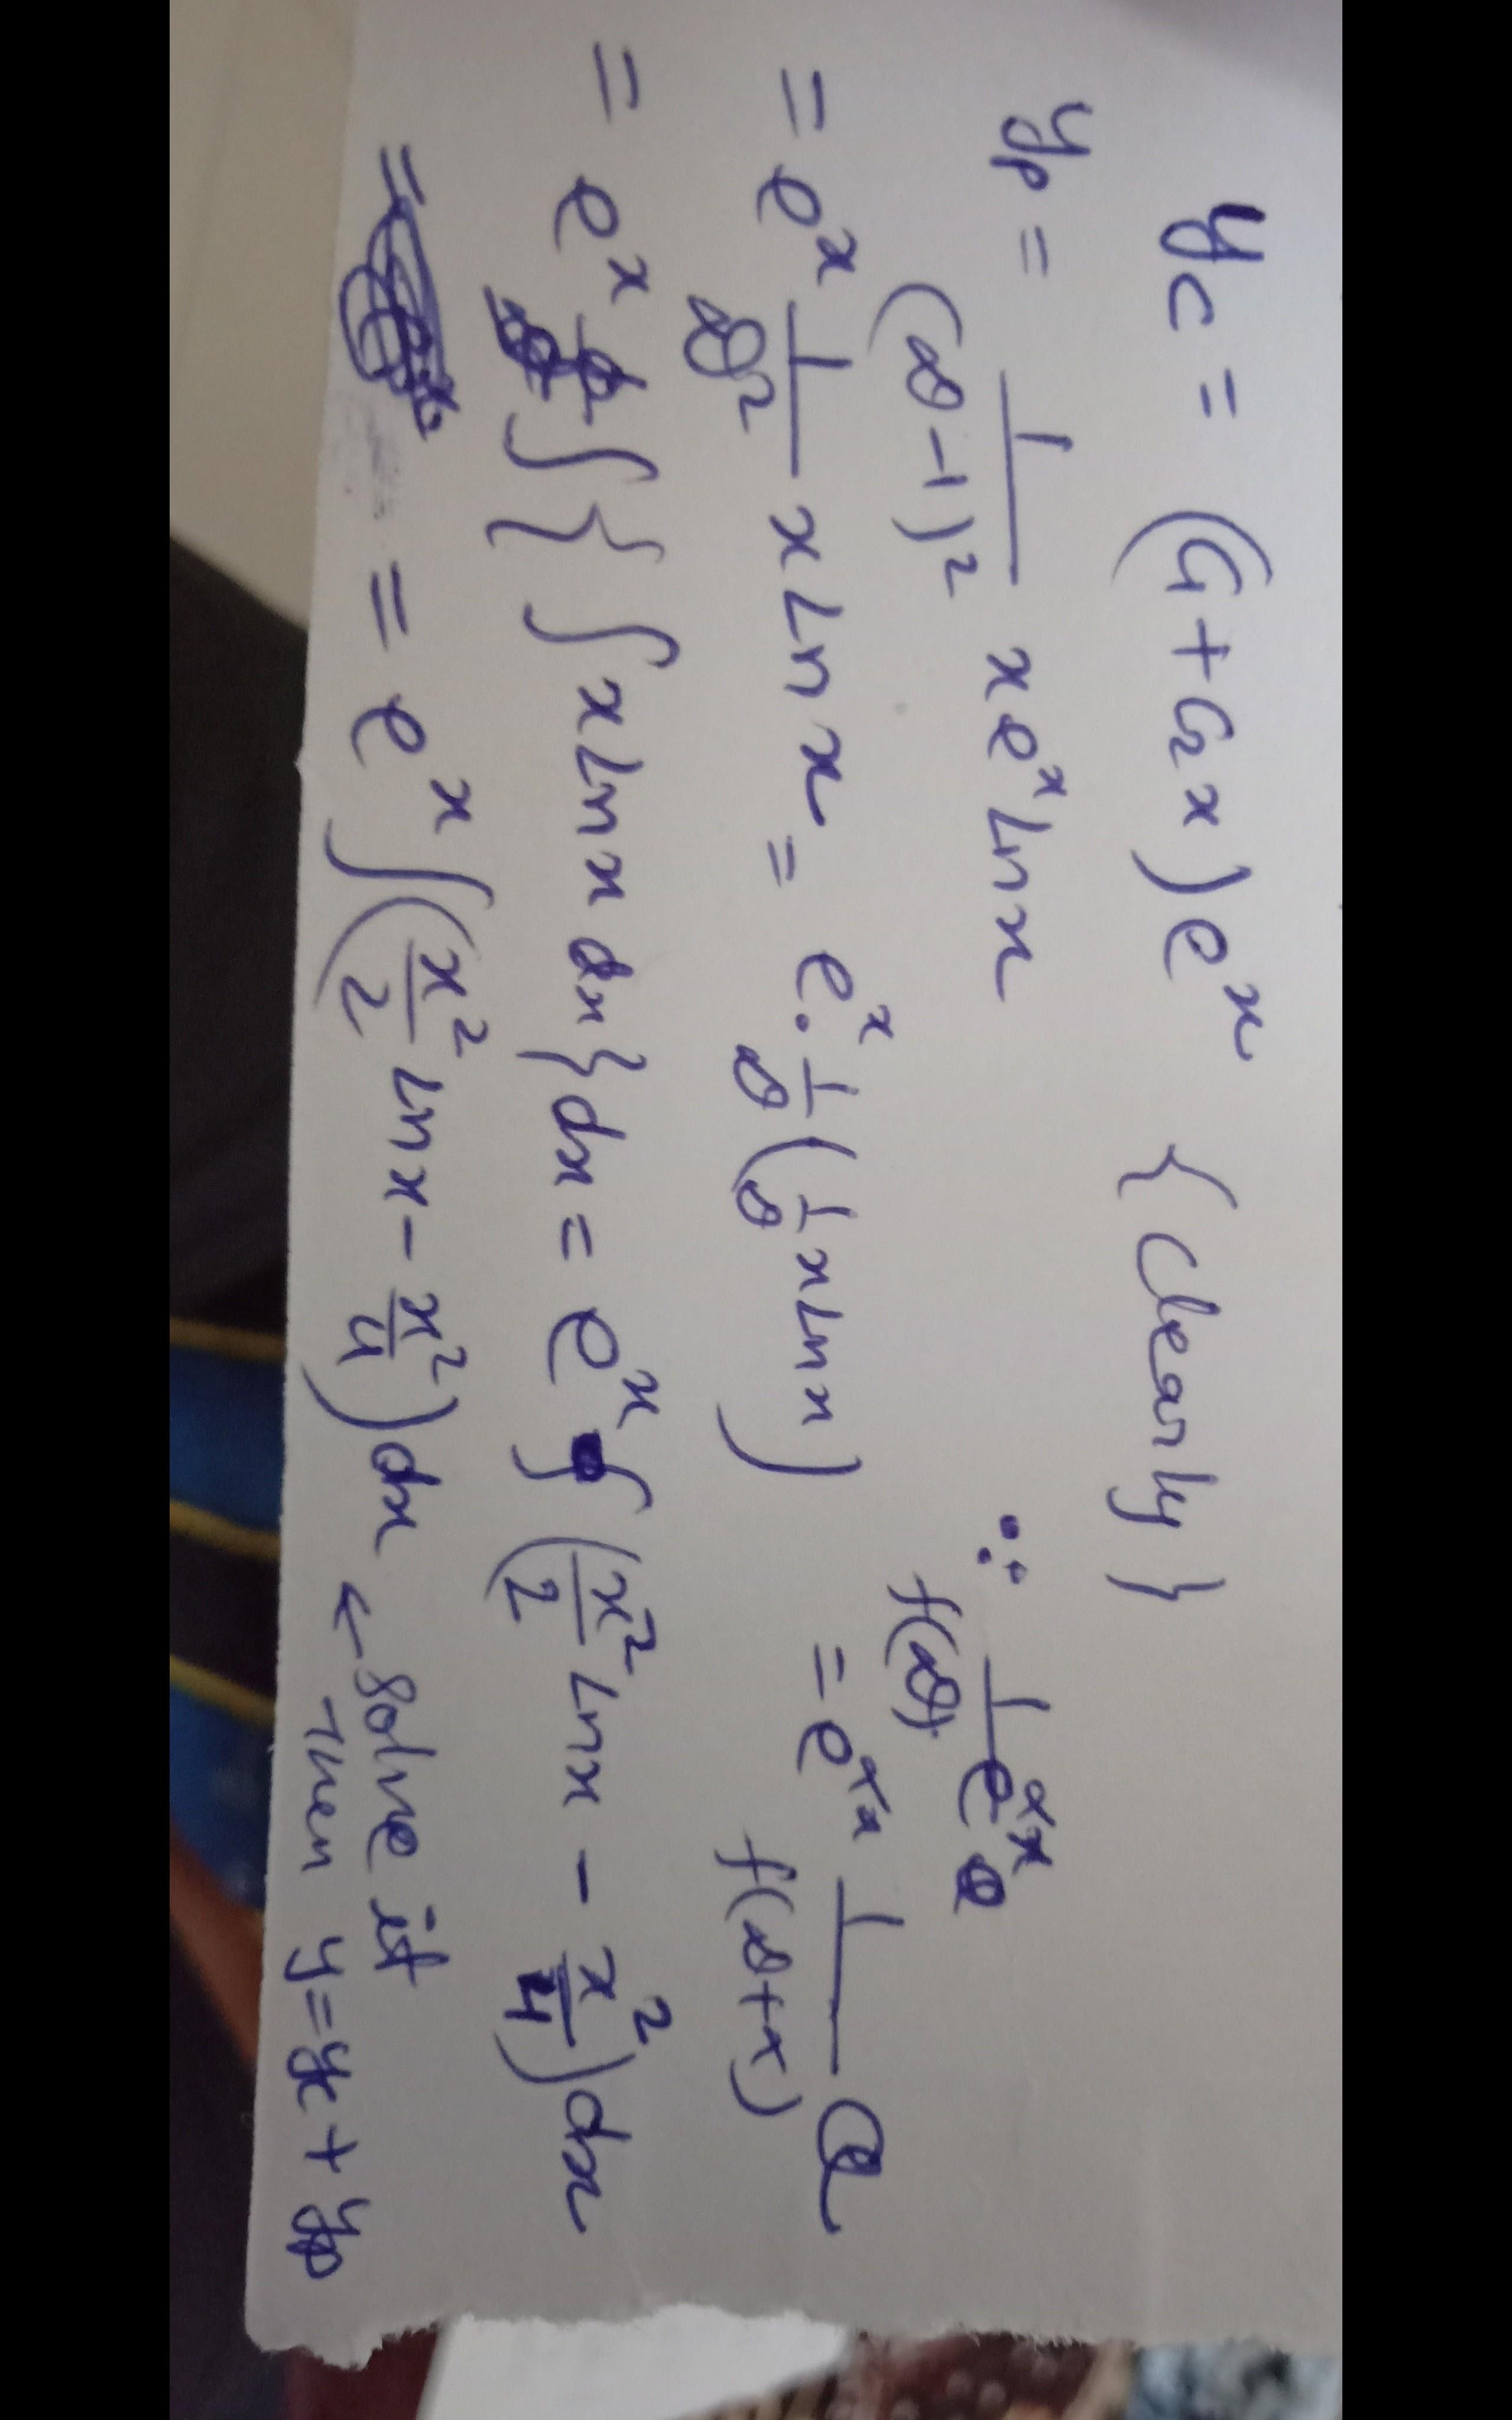 y_c = (C₁+C₂x)e^x {Clearly}
y_p = 1/(D-1)² x e^x Ln x
∵ 1/f(D) e^{αx} Q
= e^{αx} 1/f(D+α) Q
= e^x 1/D² x Ln x = e^x · 1/D (1/D x Ln x)
= e^x ∫{∫x Ln x dx}dx = e^x ∫(x²/2 Ln x - x²/4)dx
= e^x ∫(x²/2 Ln x - x²/4)dx ← Solve it
Then y = y_c + y_p